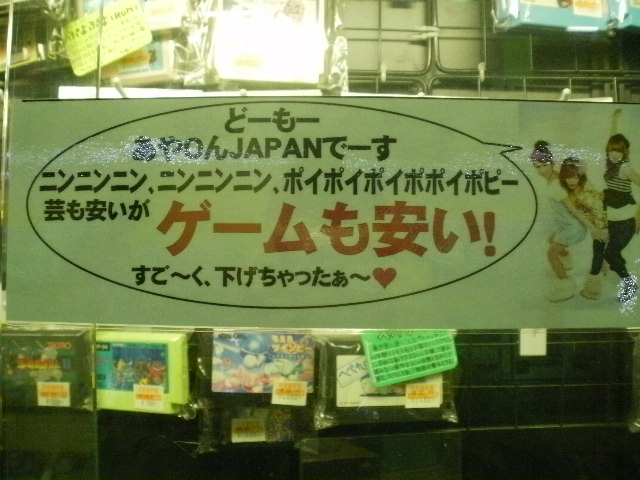 どーもー
あやOんJAPANでーす
ニンニンニン、ニンニンニン、ポイポイポイポポイポピー
芸も安いが
ゲームも安い!
すご〜く、下げちゃったぁ〜♥